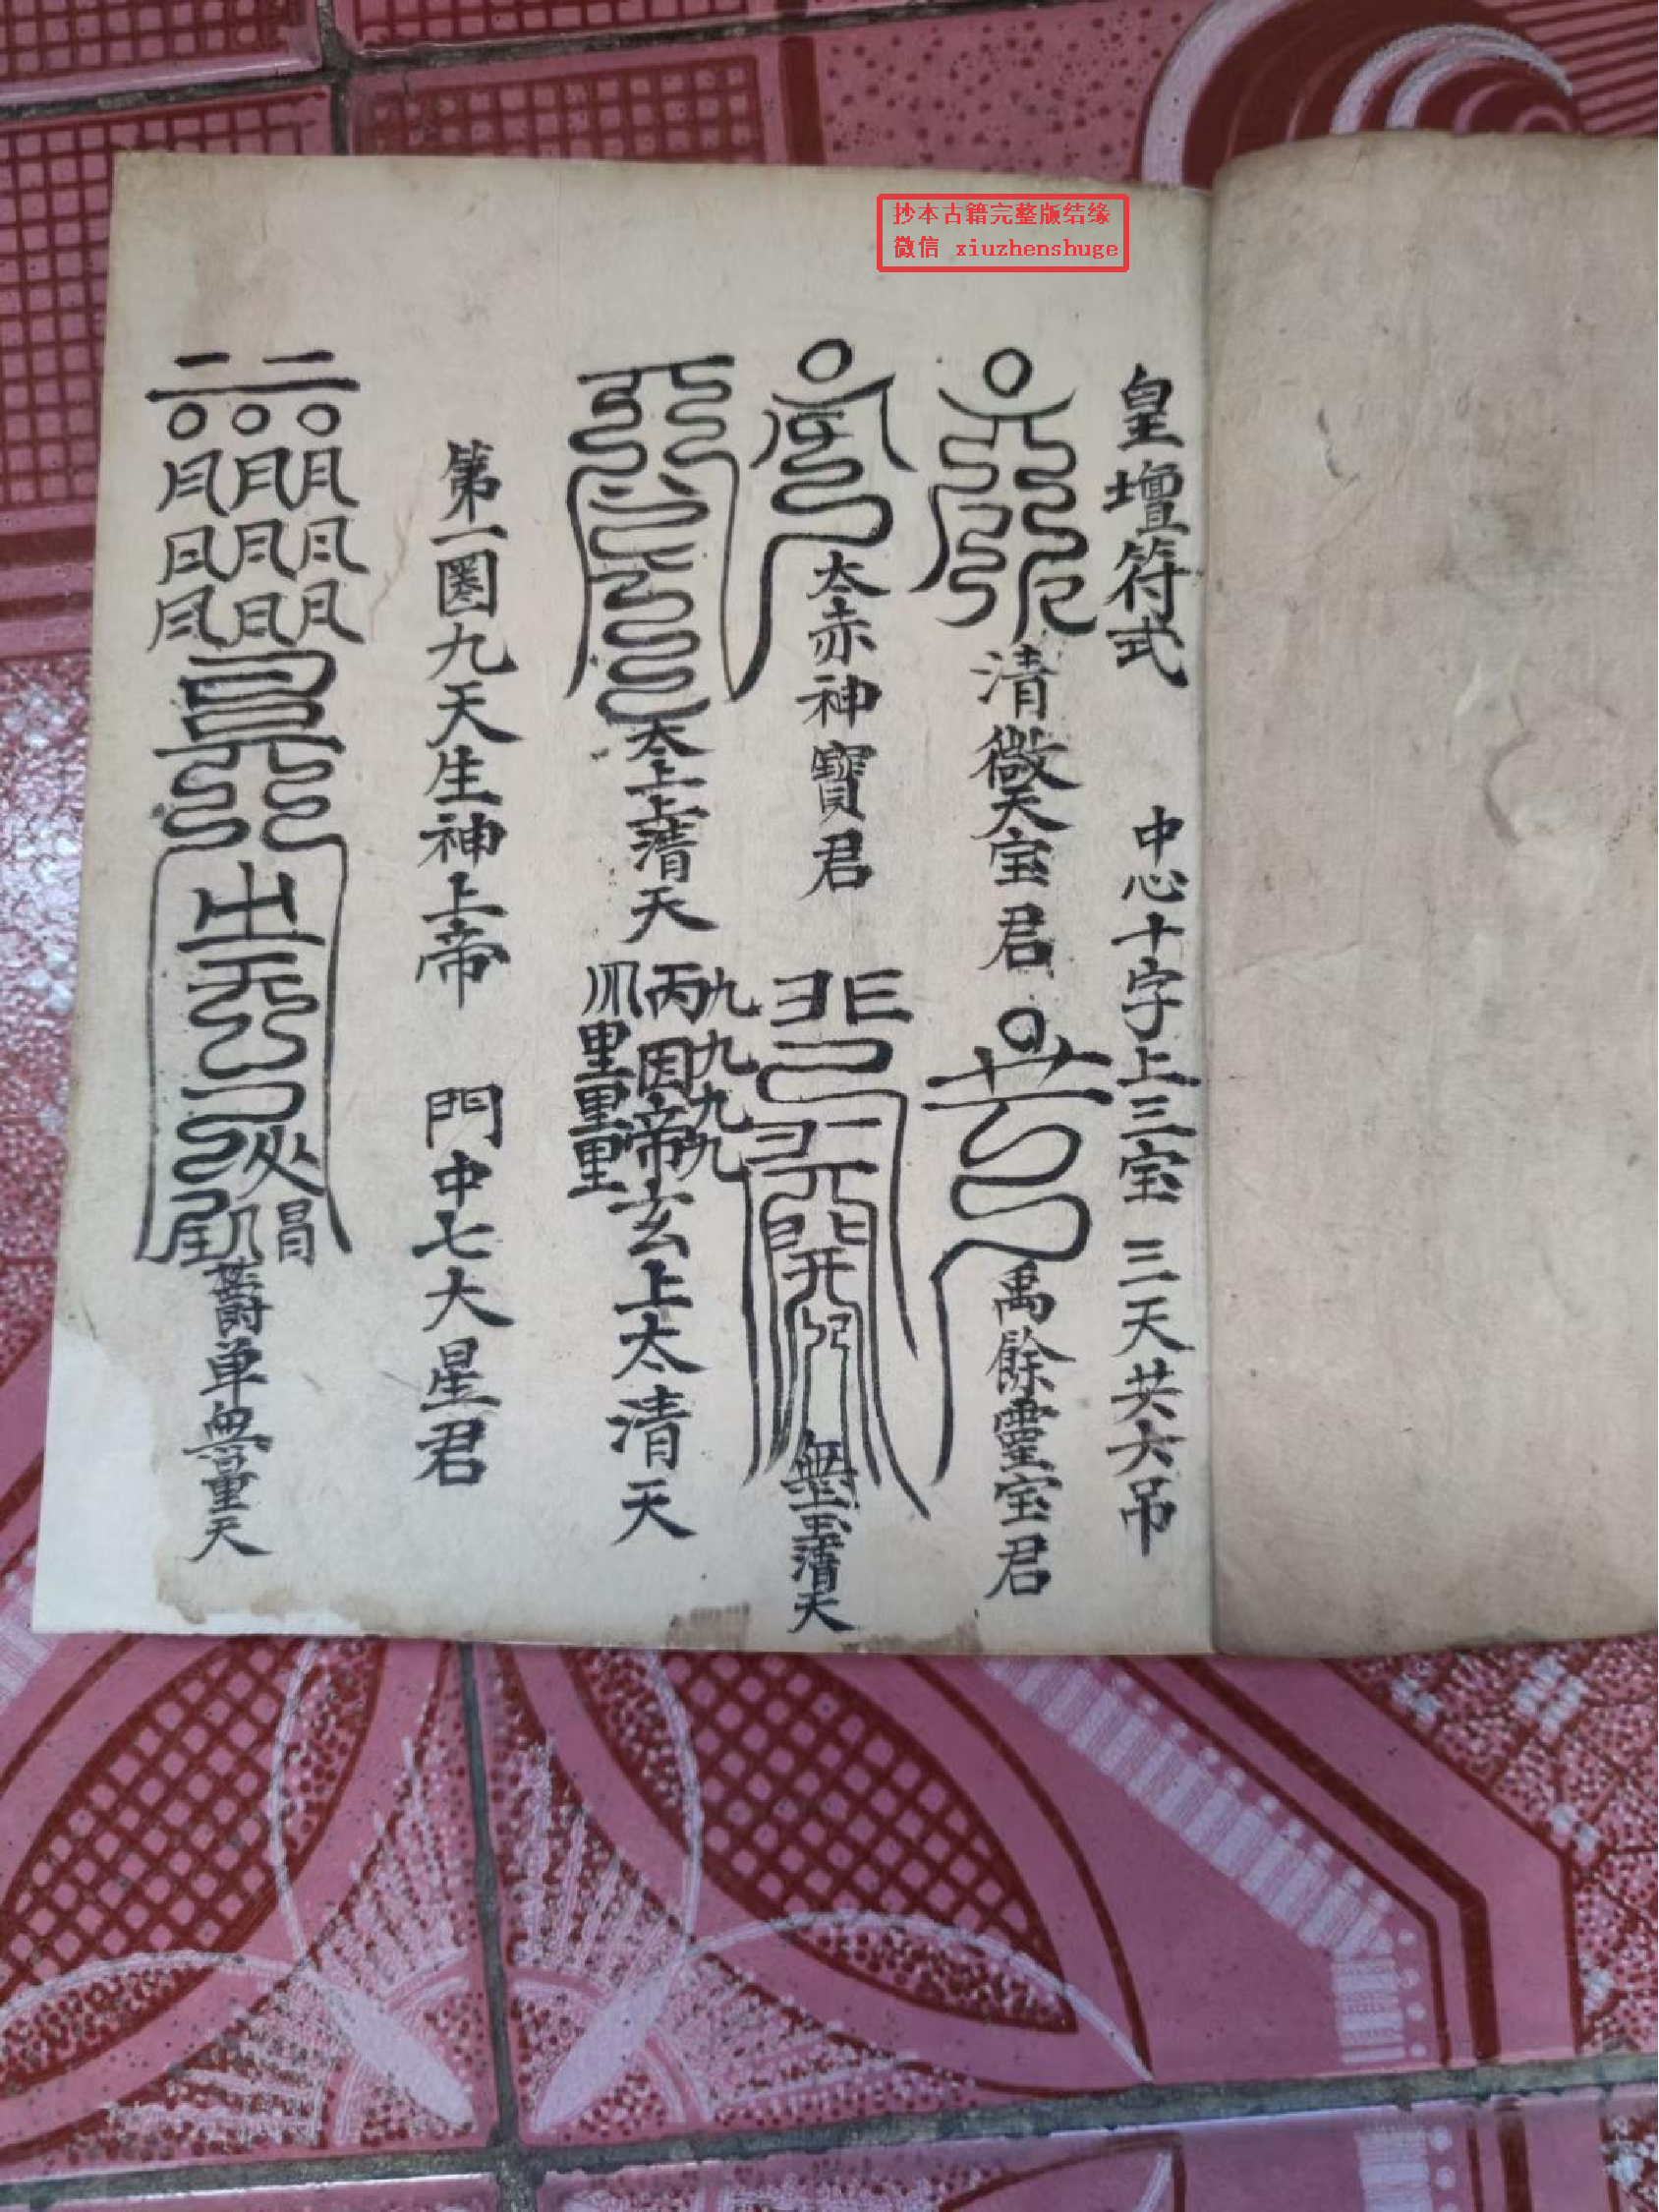 抄本古籍完整版结缘
微信 xiuzhenshuge
皇壇符式 中心十字上三宝 三天共六吊
清微天宝君 禹餘靈宝君
太赤神寶君 無上玉清天
太上上清天 玄上太清天
第一圈九天生神上帝 門中七大星君
欝单無量天